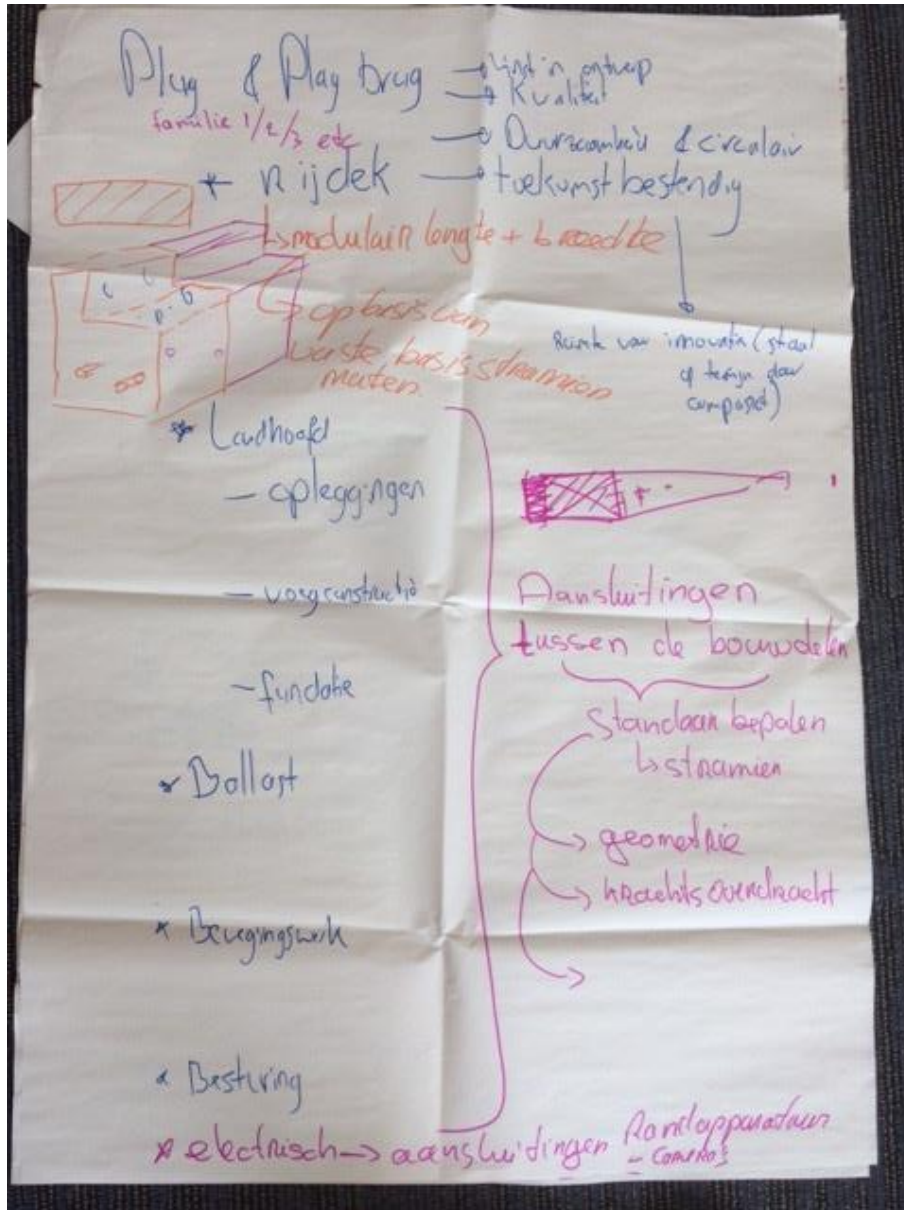 Plug & Play brug
→ Winst in ontwerp
→ Kwaliteit
familie 1/2/3 etc
→ Duurzaamheid & circulair
* Rijdek → toekomst bestendig
↳ modulair lengte + breedte
↳ op basis van
vaste basis stramien
maten.
Ruimte voor innovatie (staal
of
composiet)
* Landhoofd
- opleggingen
- voegconstructie
- fundatie
* Ballast
* Bewegingswerk
* Besturing
* electrisch → aansluidingen Randapparatuur
- camera's
Aansluitingen
tussen de bouwdelen
standaar bepalen
↳ stramien
→ geometrie
→ krachtsoverdracht